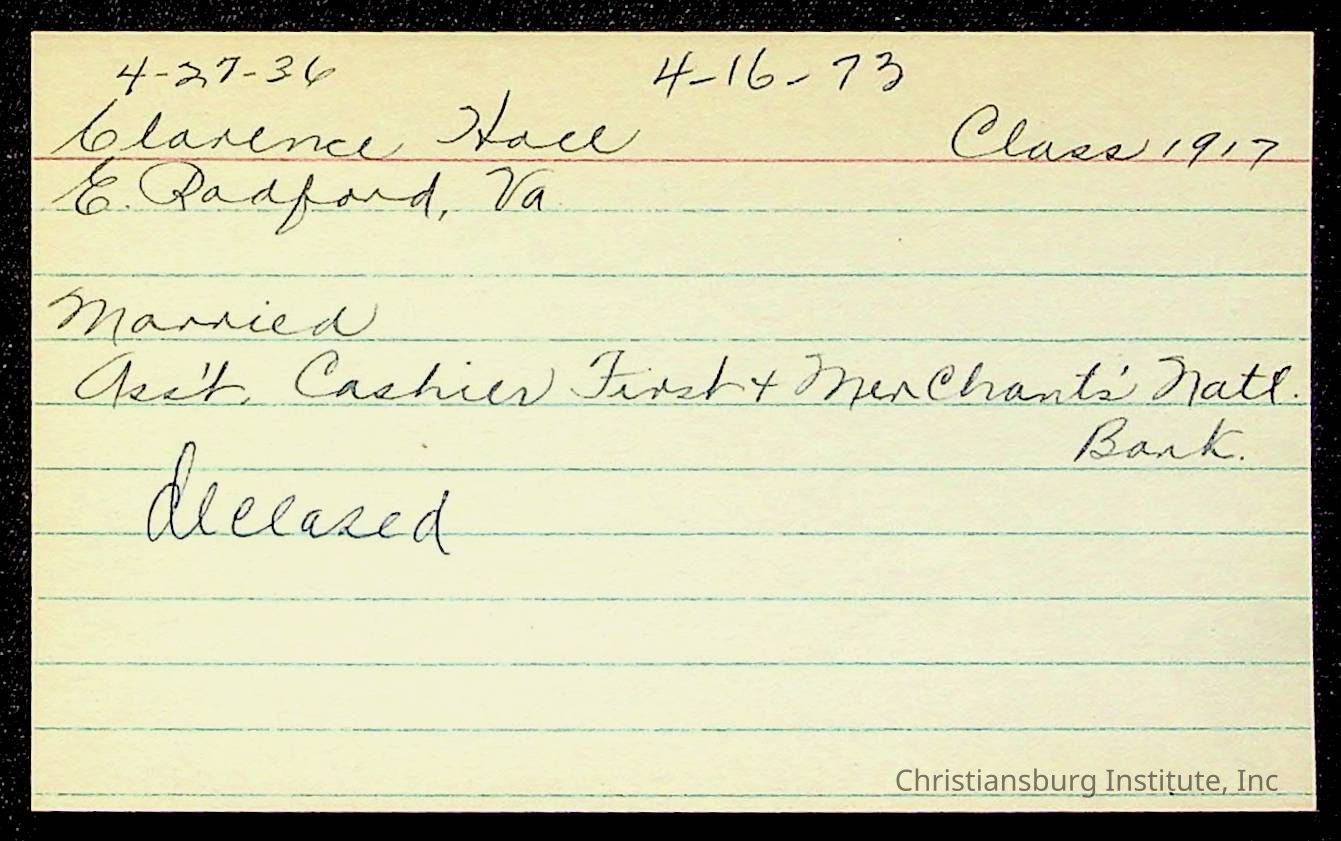 4-27-36 4-16-73
Clarence Hall Class 1917
E. Radford, Va
Married
Ass't. Cashier First + Merchants' Natl.
Bank.
deceased
Christiansburg Institute, Inc